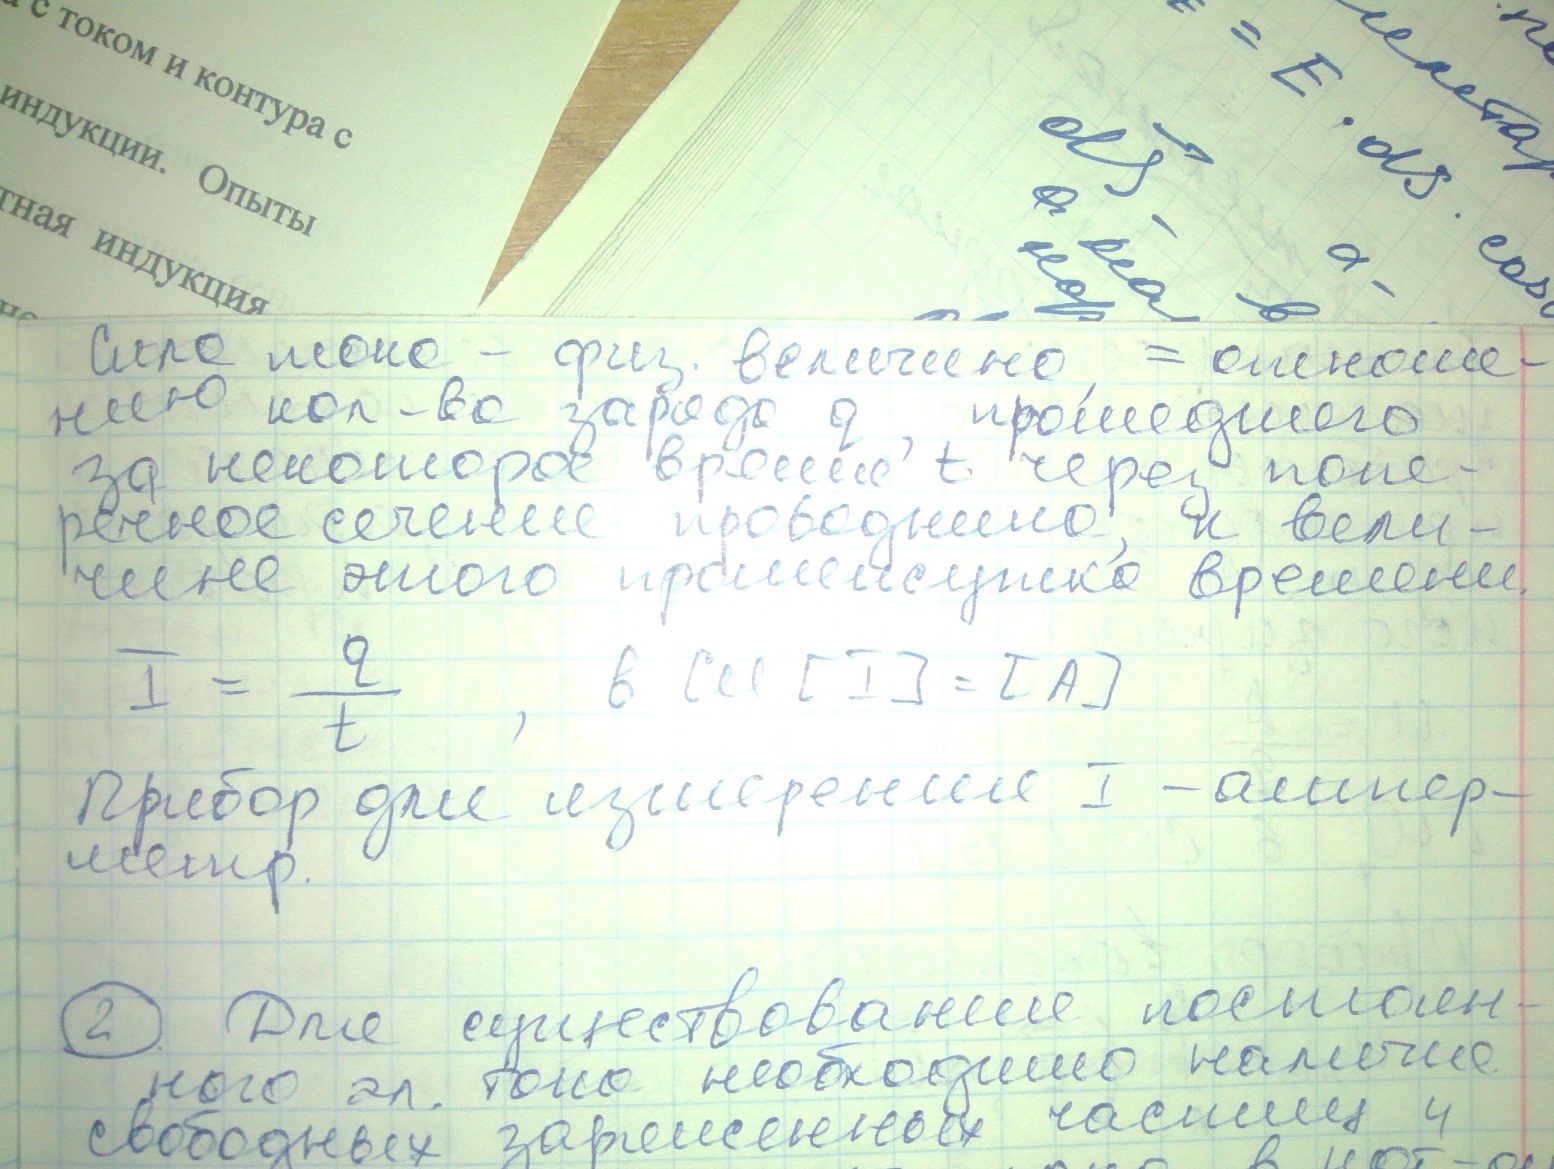 а с током и контура с
индукции. Опыты
тная индукция
= E · ds · cos
ds -
α -
в
Сила тока – физ. величина, = отноше-
нию кол-ва заряда q, прошедшего
за некоторое время t через попе-
речное сечение проводника, к вели-
чине этого промежутка времени.
I = q/t , в СИ [I] = [A]
Прибор для измерения I – ампер-
метр.
2 Для существования постоян-
ного эл. тока необходимо наличие
свободных заряженных частиц и